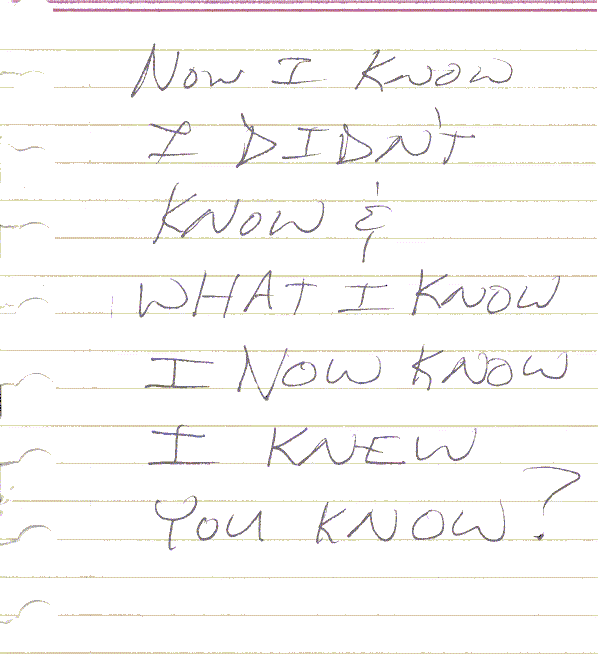 NOW I KNOW
I DIDN'T
KNOW &
WHAT I KNOW
I NOW KNOW
I KNEW
YOU KNOW?